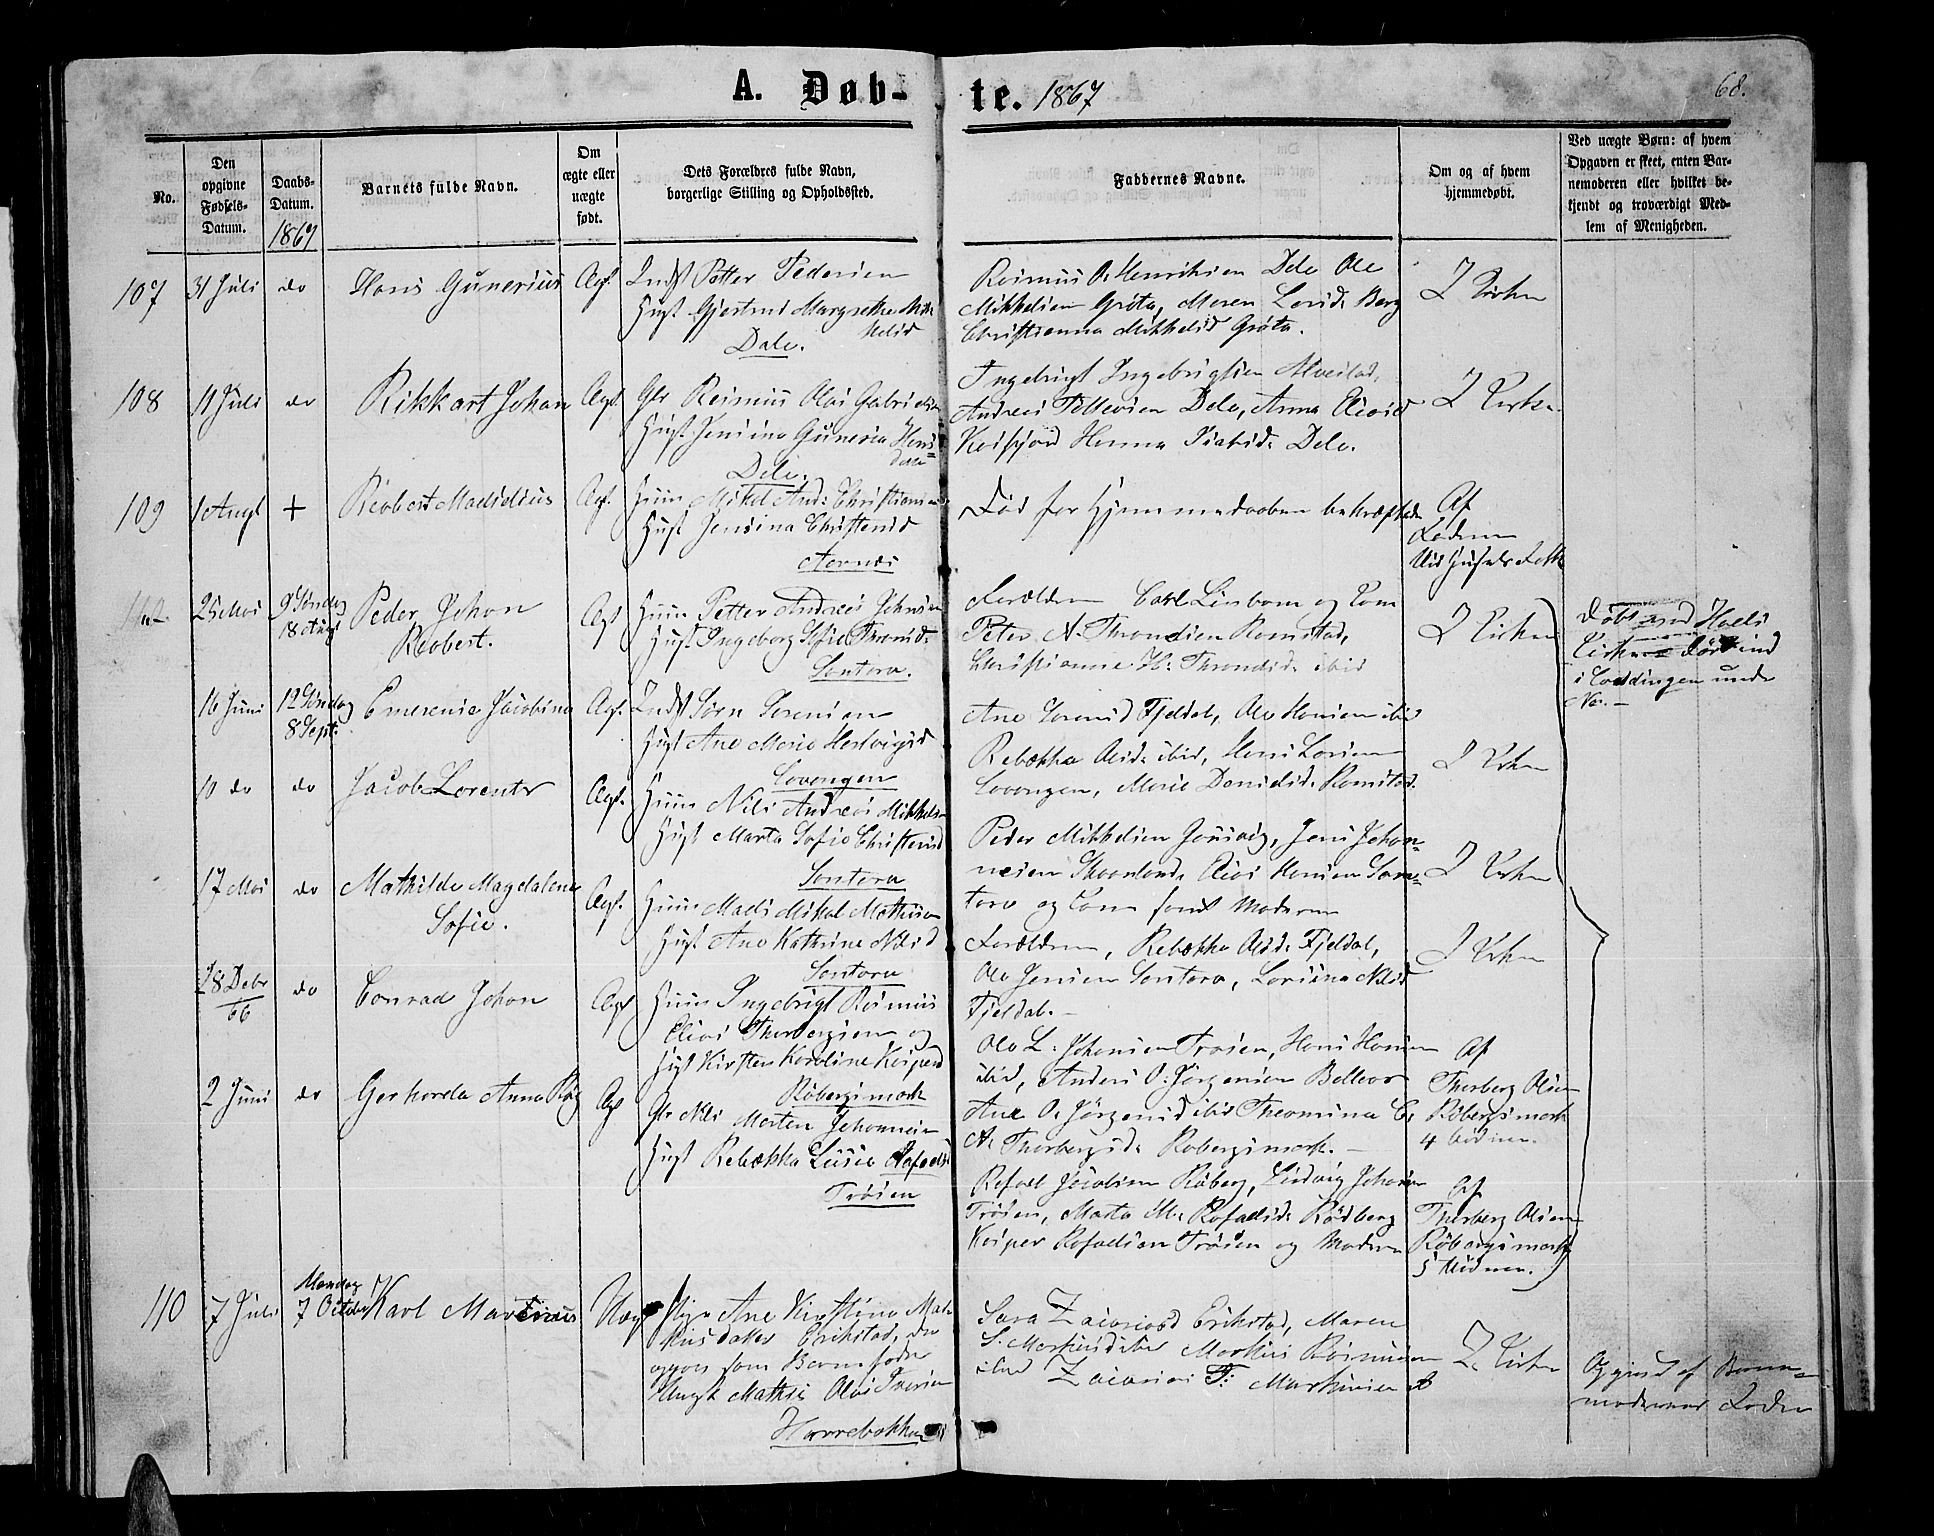 A. Døb-
te. 1867
68.
No.
Den
opgivne
Fødsels-
Datum.
Daabs-
Datum.
1867
Barnets fulde Navn.
Om
ægte eller
uægte
født.
Dets Forældres fulde Navn,
borgerlige Stilling og Opholdssted.
Faddernes Navne.
Om og af hvem
hjemmedøbt.
Ved uægte Børn: af hvem
Opgaven er skeet, enten Bar-
nemoderen eller hvilket be-
kjendt og troværdigt Med-
lem af Menigheden.
107
31 Juli
do
Hans Gunerius
Ægt.
Inds Petter Pedersen
Hust Gjertrud Margrethe Mik-
kelsd
Dale.
Rasmus O. Henriksen Dale Ole
Mikkelsen Grøta, Maren Larsd. Berg
Christianna Mikkelsd Grøta.
I Kirken
108
11 Juli
do
Rikkart Johan
Ægt.
Gbr Rasmus Olai Gabrielsen
Hust. Jensina Guneria Hans-
datter
Dale.
Ingebrigt Ingebrigtsen
Andreas Dale, Anna
Hanna Dale.
I Kirken
109
1 Augt
+
Robert Madselius
Ægt.
Huus Mikal And: Christiansen
Hust Jensina Christensd
Aarnæs
Lød for Hjemmedaaben bekræftede
Af
Faderen
25 Mai
9 Søndag
18 Augt
Peder Johan
Robert.
Ægt
Huus Petter Andreas Johnsen
Hust Ingeborg Sofie Thronds.
Santorv.
Forældrene Carl Linbom og Kone
Peter A. Throndsen Ramstad,
Christianne H: Throndsd. ibid
I Kirken
Døbt ved Hols
Kirke
i Lødingen under
No. –
16 Juni
12 Søndag
8 Sept.
Emerense Jacobine
Ægt.
Inds Søren Sørensen
Hust Ane Marie Hartvigsd
Lovangen
Ane Fjeldal, Ole Hansen ibid
Rebekka Olsd. ibid, Hans Larsen
Lovangen, Marie Danielsd. Ramstad.
I Kirken
10 do
do
Jacob Lorents
Ægt.
Huus Nils Andreas Mikkelsen
Hust Marta Sofie Christensd
Santorv
Peder Mikkelsen, Jens Johan-
nesen Skaanland, Elias Hansen San-
torv og Kone samt Moderen
I Kirken
17 Mai
do
Mathilde Magdalena
Sofie.
Ægt.
Huus Mads Mikal Mathisen
Hust Ane Kathrine Nilsd
Santorv
Forældrene, Rebekka Olsd. Fjeldal,
Ole Jensen Santorv, Larsina Nilsd
Fjeldal. –
I Kirken
28 Debr
66
do
Conrad Johan
Ægt
Huus Ingebrigt Rasmus
Elias Thorbergsen og
Hust Kirsten Karoline Kaspersd
Røbergsmark
Ole L. Johansen Trøsen, Hans Hansen
ibid, Anders O. Jørgensen
Ane O. Jørgensd ibid Theomina C.
A. Thorbergsd. Robergsmark. –
Af
Thorberg Olsen
Røbergsmark
2 Juni
do
Gerharda Anna
Ægt
Gbr Nils Morten Johannesen
Hust Rebekka Lusie Rafaelsd
Trøsen
Rafael Jacobsen Røberg, Ludvig Johansen
Trøsen, Marta M. Rafaelsd. Rødberg
Kasper Rafaelsen Trøsen og Moderen
Af
Thorberg Olsen
Røbergsmark
110
7 Juli
Mandag
7 October
Karl Martinus
Uægt
Pige Ane Kirstine Mar-
kusdatter Erikstad, der
opgav som Barnefader
Ungk Mathis Olai Iversen
Harrebakken
Sara Zacariasd Erikstad, Maren
S. Markusd ibid Markus Rasmussen
ibid Zacarias F: Markussen
I Kirken
Opgivet af Barne-
moderens Fader